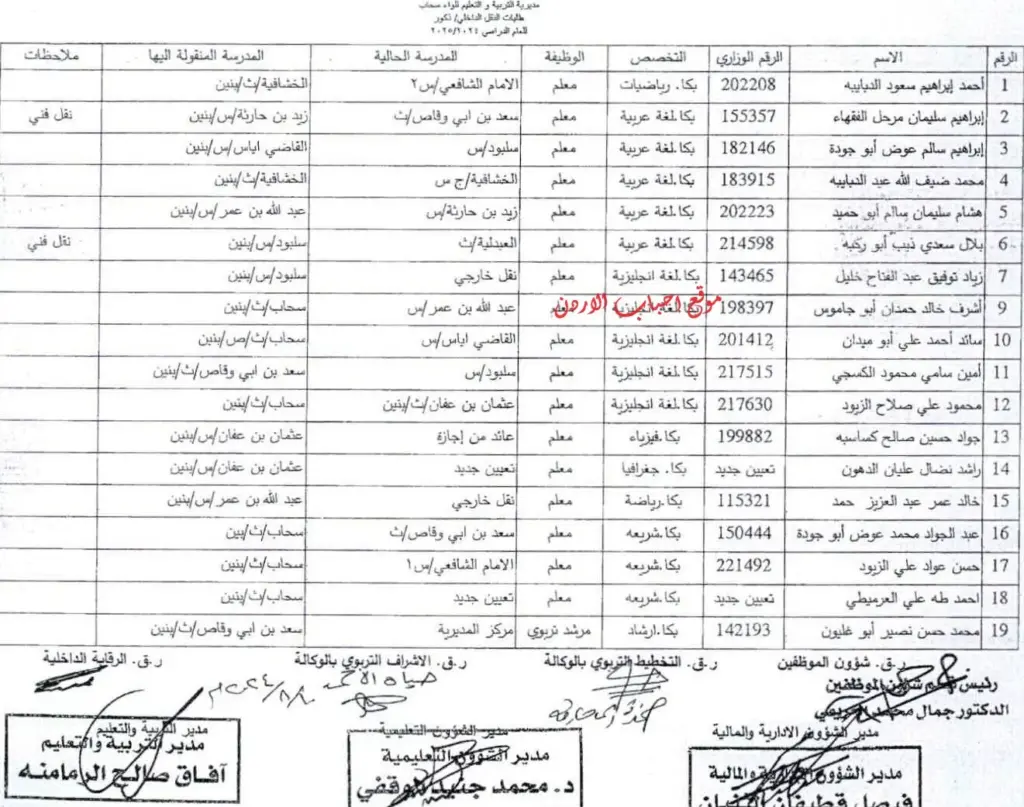 مديرية التربية و التعليم للواء سحاب
طلبات النقل الداخلي/ ذكور
للعام الدراسي ٢٠٢٥/٢٠٢٤
الرقم الاسم الرقم الوزاري التخصص الوظيفة المدرسة الحالية المدرسة المنقولة اليها ملاحظات
1 أحمد إبراهيم سعود الدبايبه 202208 بكا. رياضيات معلم الامام الشافعي/س٢ الخشافية/ث/بنين
2 إبراهيم سليمان مرحل الفقهاء 155357 بكا.لغة عربية معلم سعد بن ابي وقاص/ث زيد بن حارثة/س/بنين نقل فني
3 إبراهيم سالم عوض أبو جودة 182146 بكا.لغة عربية معلم سلبود/س القاضي اياس/س/بنين
4 محمد ضيف الله عبد الدبايبه 183915 بكا.لغة عربية معلم الخشافية/ج س الخشافية/ث/بنين
5 هشام سليمان سالم أبو حميد 202223 بكا.لغة عربية معلم زيد بن حارثة/س عبد الله بن عمر/س/بنين
6 بلال سعدي ذيب أبو ركبه 214598 بكا.لغة عربية معلم العبدلية/ث سلبود/س/بنين نقل فني
7 زياد توفيق عبد الفتاح خليل 143465 بكا.لغة انجليزية معلم نقل خارجي سلبود/س/بنين
9 أشرف خالد حمدان أبو جاموس 198397 بكا.لغة انجليزية معلم عبد الله بن عمر/س سحاب/ث/بنين
موقع احباب الاردن
10 سائد أحمد علي أبو ميدان 201412 بكا.لغة انجليزية معلم القاضي اياس/س سحاب/ث/ص/بنين
11 أمين سامي محمود الكسجي 217515 بكا.لغة انجليزية معلم سلبود/س سعد بن ابي وقاص/ث/بنين
12 محمود علي صلاح الزيود 217630 بكا.لغة انجليزية معلم عثمان بن عفان/ث/بنين سحاب/ث/بنين
13 جواد حسين صالح كساسبه 199882 بكا.فيزياء معلم عائد من إجازة عثمان بن عفان/س/بنين
14 راشد نضال عليان الدهون تعيين جديد بكا. جغرافيا معلم تعيين جديد عثمان بن عفان/س/بنين
15 خالد عمر عبد العزيز حمد 115321 بكا.رياضة معلم نقل خارجي عبد الله بن عمر/س/بنين
16 عبد الجواد محمد عوض أبو جودة 150444 بكا.شريعه معلم سعد بن ابي وقاص/ث سحاب/ث/بين
17 حسن عواد علي الزيود 221492 بكا.شريعه معلم الامام الشافعي/س١ سحاب/ث/بنين
18 احمد طه علي العرميطي تعيين جديد بكا.شريعه معلم تعيين جديد سحاب/ث/بنين
19 محمد حسن نصير أبو غليون 142193 بكا.ارشاد مرشد تربوي مركز المديرية سعد بن ابي وقاص/ث/بنين
ر.ق. شؤون الموظفين ر.ق. التخطيط التربوي بالوكالة ر.ق. الاشراف التربوي بالوكالة ر.ق. الرقابة الداخلية
رئيس قسم شؤون الموظفين
الدكتور جمال محمد
مدير الشؤون الادارية والمالية مدير الشؤون التعليمية مدير التربية والتعليم
مدير الشؤون الإدارية والمالية مدير الشؤون التعليمية مدير التربية والتعليم
د. محمد جنيد الوقفي آفاق صالح الرمامنه